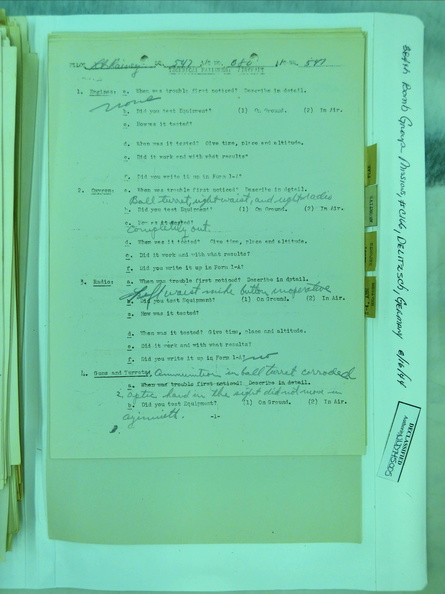 547
1. Engines: a. When was trouble first noticed? Describe in detail.
none
b. Did you test Equipment? (1) On Ground. (2) In Air.
c. How was it tested?
d. When was it tested? Give time, place and altitude.
e. Did it work and with what results?
f. Did you write it up in Form 1-A?
2. a. When was trouble first noticed? Describe in detail.
Ball turret, right waist, and right
b. Did you test Equipment? (1) On Ground. (2) In Air.
c. How was it tested?
completely out.
d. When was it tested? Give time, place and altitude.
e. Did it work and with what results?
f. Did you write it up in Form 1-A?
3. Radio: a. When was trouble first noticed? Describe in detail.
Left waist mike button inoperative
b. Did you test Equipment? (1) On Ground. (2) In Air.
c. How was it tested?
d. When was it tested? Give time, place and altitude.
e. Did it work and with what results?
f. Did you write it up in Form 1-A? no
4. Guns and Turrets: Ammunition in ball turret corroded
a. When was trouble first noticed? Describe in detail.
2. optic head in the sight did not move in
b. Did you test Equipment? (1) On Ground. (2) In Air.
azimuth.
-1-
384th Bomb Group Mission, Delitzsch, Germany 8/16/44
DECLASSIFIED
Authority NND 745005